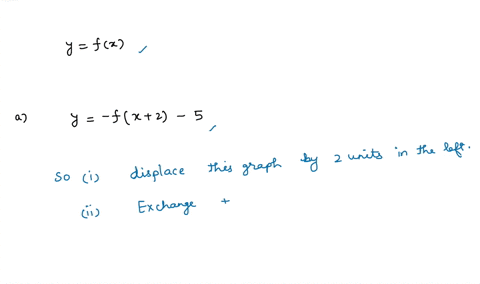 y = f(x)
a) y = -f(x+2) - 5
So (i) displace this graph by 2 units in the left.
(ii) Exchange +